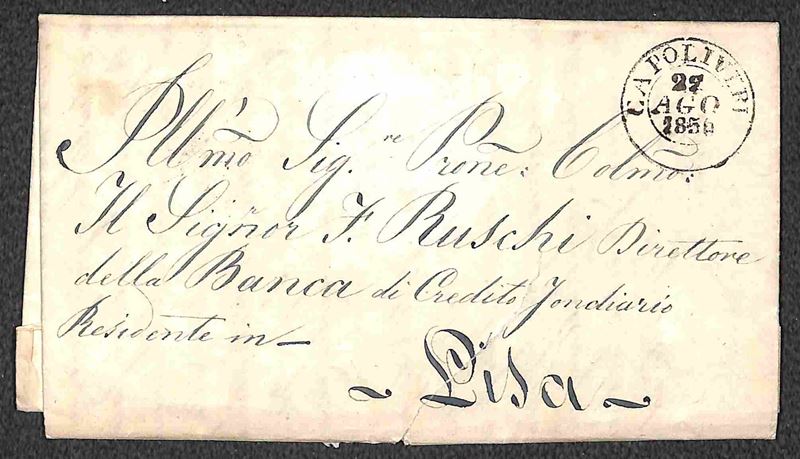 CAPOLIVERI
27
AGO
1856
Ill'mo Sig.re Prone: Colmo:
Il Signor F. Ruschi Direttore
della Banca di Credito Fondiario
Residente in
Pisa